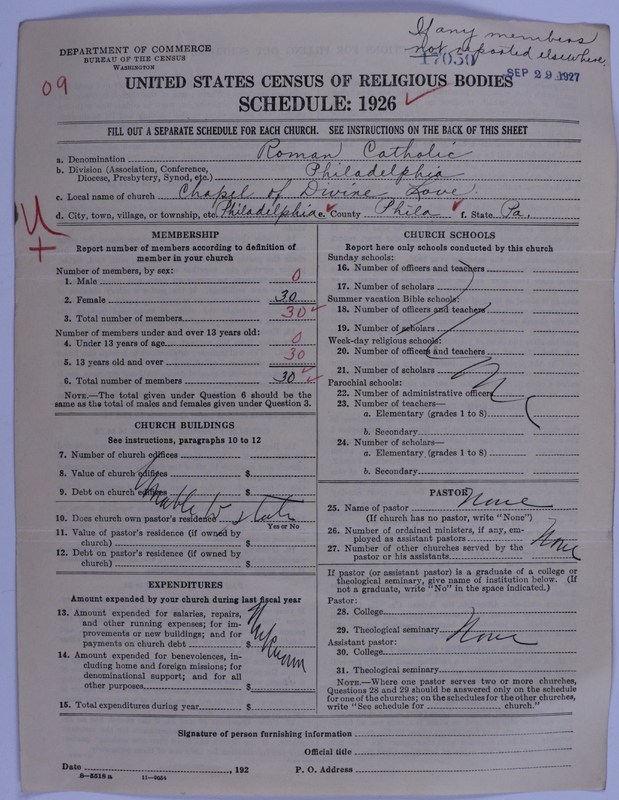 If any members
not reported elsewhere.
17050
SEP 29 1927
DEPARTMENT OF COMMERCE
BUREAU OF THE CENSUS
WASHINGTON
09
UNITED STATES CENSUS OF RELIGIOUS BODIES
SCHEDULE: 1926 ✓
FILL OUT A SEPARATE SCHEDULE FOR EACH CHURCH. SEE INSTRUCTIONS ON THE BACK OF THIS SHEET
a. Denomination Roman Catholic
b. Division (Association, Conference, Diocese, Presbytery, Synod, etc.) Philadelphia
c. Local name of church Chapel of Divine Love.
d. City, town, village, or township, etc. Philadelphia e. County Phila f. State. Pa.
U
+
MEMBERSHIP
Report number of members according to definition of
member in your church
Number of members, by sex:
1. Male 0
2. Female 30
3. Total number of members 30 ✓
Number of members under and over 13 years old:
4. Under 13 years of age 0
5. 13 years old and over 30
6. Total number of members 30 ✓
NOTE.—The total given under Question 6 should be
the same as the total of males and females given under Question 3.
CHURCH BUILDINGS
See instructions, paragraphs 10 to 12
7. Number of church edifices
8. Value of church edifices $
9. Debt on church edifices $
Unable to state
10. Does church own pastor's residence
Yes or No
11. Value of pastor's residence (if owned by
church) $
12. Debt on pastor's residence (if owned by
church) $
EXPENDITURES
Amount expended by your church during last fiscal year
13. Amount expended for salaries, repairs,
and other running expenses; for im-
provements or new buildings; and for
payments on church debt $
14. Amount expended for benevolences, in-
cluding home and foreign missions; for
denominational support; and for all
other purposes $
15. Total expenditures during year $
CHURCH SCHOOLS
Report here only schools conducted by this church
Sunday schools:
16. Number of officers and teachers
17. Number of scholars
Summer vacation Bible schools:
18. Number of officers and teachers
19. Number of scholars
Week-day religious schools:
20. Number of officers and teachers
21. Number of scholars
Parochial schools:
22. Number of administrative officers
23. Number of teachers—
a. Elementary (grades 1 to 8)
b. Secondary
24. Number of scholars—
a. Elementary (grades 1 to 8)
b. Secondary
PASTOR
25. Name of pastor None
(If church has no pastor, write "None")
26. Number of ordained ministers, if any, em-
ployed as assistant pastors
27. Number of other churches served by the
pastor or his assistants
None
If pastor (or assistant pastor) is a graduate of a college or
theological seminary, give name of institution below. (If
not a graduate, write "No" in the space indicated.)
Pastor:
28. College
29. Theological seminary None
Assistant pastor:
30. College
31. Theological seminary
NOTE.—Where one pastor serves two or more churches,
Questions 28 and 29 should be answered only on the schedule
for one of the churches; on the schedules for the other churches,
write "See schedule for church."
Signature of person furnishing information
Official title
Date , 192 P. O. Address
8-5518 a 11-9054